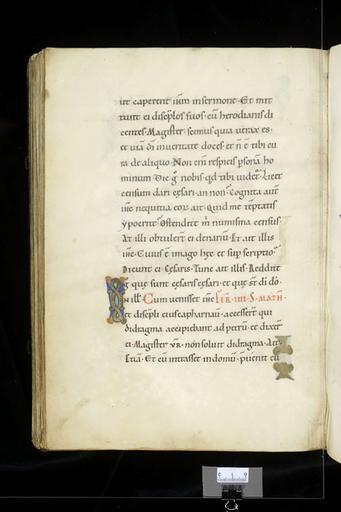 ut caperent iūm in sermone. Et mit
tunt ei discip̄los suos. cū herodianis di
centes. Magister. scimus quia uerax es.
et uiā dī in ueritate doces. et n̄ ē tibi cu
ra de aliquo. Non enī respicis psonā ho
minum. Dic g̊ nobis qd tibi uidet̄. Licet
censum dari cęsari. an non. Cognita aut̄
iħc nequitia eoꝝ. ait. Quid me tēptatis
ypocrite. Ostendite m̄ numisma census.
At illi obtuler̄t ei denariū. Et ait illis
iħc. Cuius ē imago hęc et sup scriptio.
Dicunt ei. Cęsaris. Tunc ait illis. Reddite
g̊ que sunt cęsaris cęsari. et que st̄ di dō.
IN ill̄. Cum uenisset iħc
et discip̄li eius capharnaū. accesser̄t qui
didragma accipiebant ad petrū. et dixer̄t
ei. Magister ur̄. non soluit didragma. Ait.
Etiā. Et cū intrasset in domū. p̄uenit eū